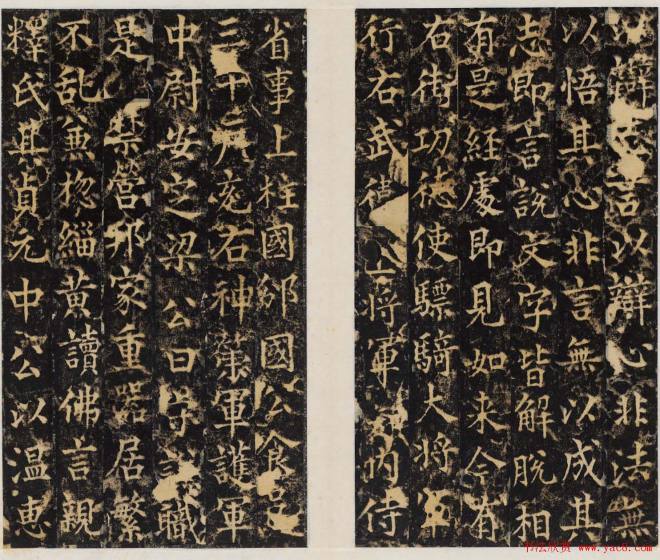 以辯言以辯心非法無
以悟其心非言無以成其
志即言說文字皆解脫相
有是經處即見如來今有
右街功德使驃騎大將軍
行右武上將軍知內侍
省事上柱國邠國公食邑
三千戶充右神策軍護軍
中尉安定梁公曰守謙職
是禁營邦家重器居繁
不乱兼惣緇黃讀佛言親
釋氏其貞元中公以溫惠
书法欣赏 www.yac8.com